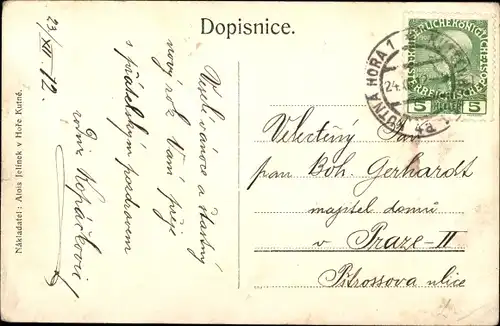 Dopisnice.
23/XII. 12.
Veselé vánoce a šťastný
nový rok Vám přeje
s přátelským pozdravem
rodina Kopáčkovic
Nákladatel: Alois Jelínek v Hoře Kutné.
KAISERLICHE KÖNIGLICHE
ÖSTERREICHISCHE POST
5 5
KUTNÁ HORA 1
24.
4a
Veletěný Pan
pan Boh. Gerhardt
majitel domů
v Praze-II
Pštrossova ulice